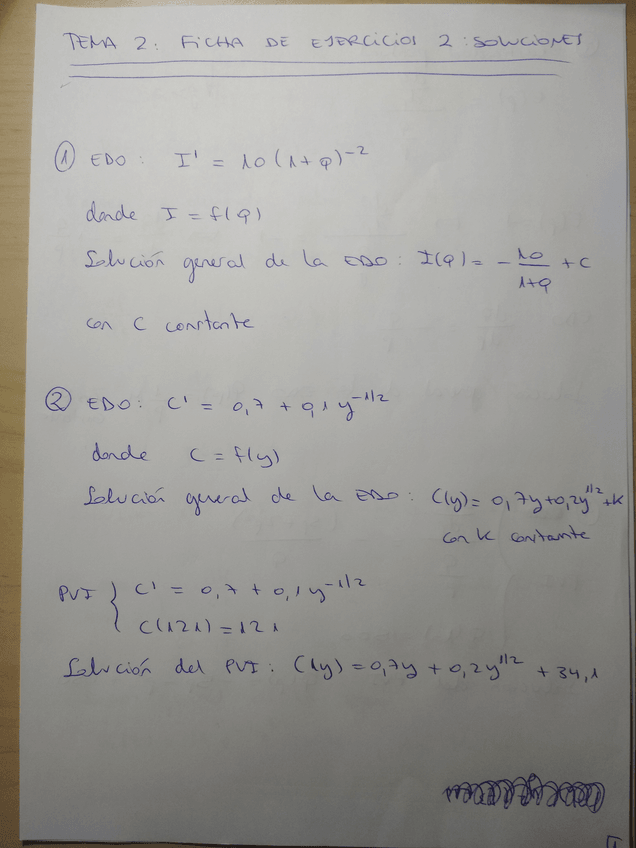 TEMA 2: FICHA DE EJERCICIOS 2: SOLUCIONES
① EDO: I' = 10(1+Q)^-2
donde I = f(Q)
Solución general de la EDO: I(Q) = - 10/(1+Q) + C
con C constante
② EDO: C' = 0,7 + 0,1 y^-1/2
donde C = f(y)
Solución general de la EDO: C(y) = 0,7y + 0,2y^1/2 + K
con K constante
PVI { C' = 0,7 + 0,1 y^-1/2
C(121) = 121
Solución del PVI: C(y) = 0,7y + 0,2y^1/2 + 34,1